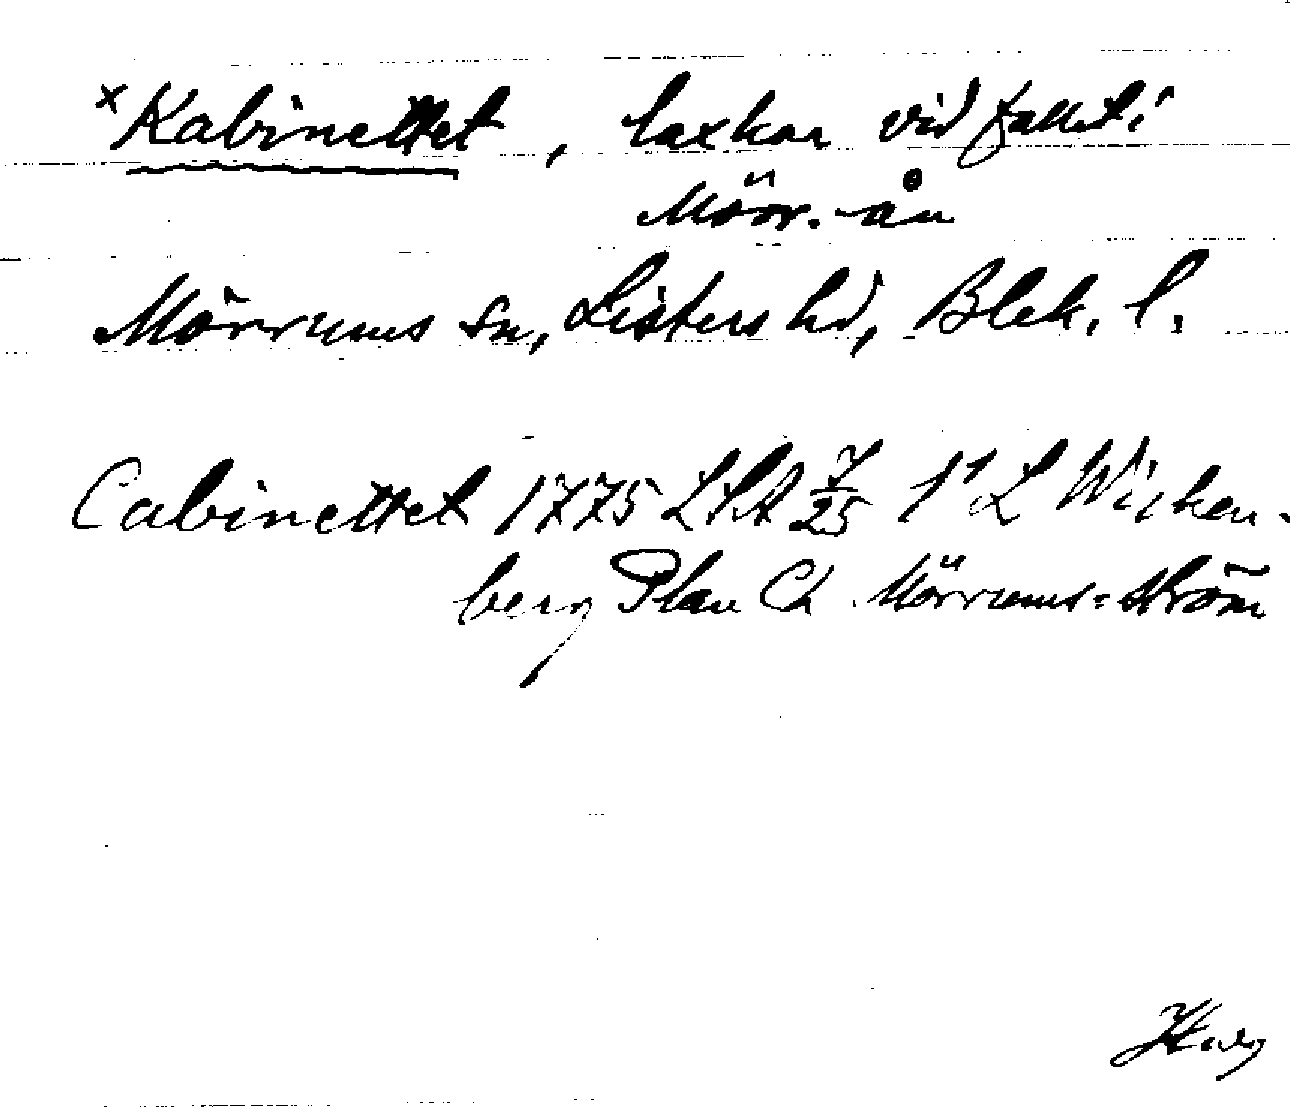 × Kabinettet, laxkar vid fallet i
Mörr.-ån
Mörrums sn, Listers hd, Blek. l.
Cabinettet 1775 LSA 7/25 L Wicken-
berg Plan Ch Mörrums-ström